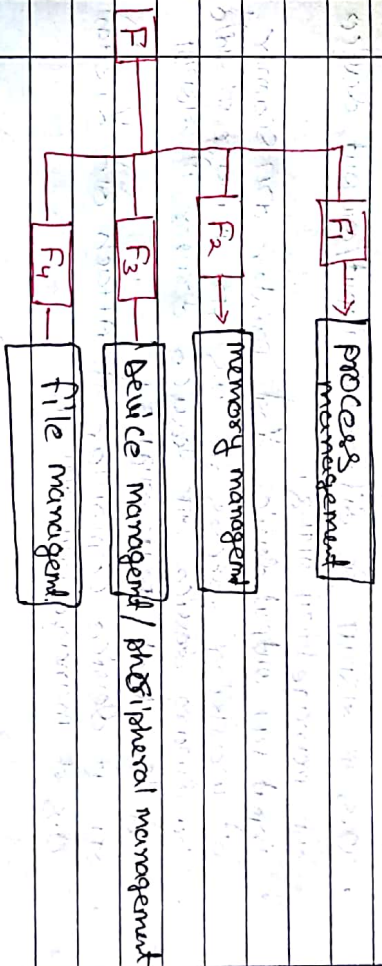 F
F1
process
management
F2
memory managemt
F3
Device managemt / pheripheral management
F4
file managemt